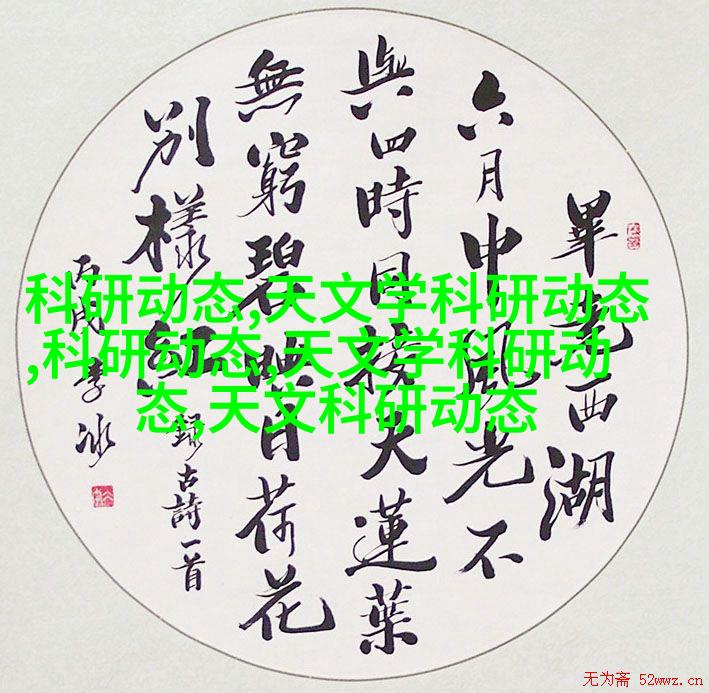 畢竟西湖
六月中風光不
與四時同接天蓮葉
無窮碧映日荷花
別樣紅 錄古詩一首
丙戌 李冰
科研动态,天文学科研动态
,科研动态,天文学科研动
态,天文科研动态
无为斋 52wwz.cn